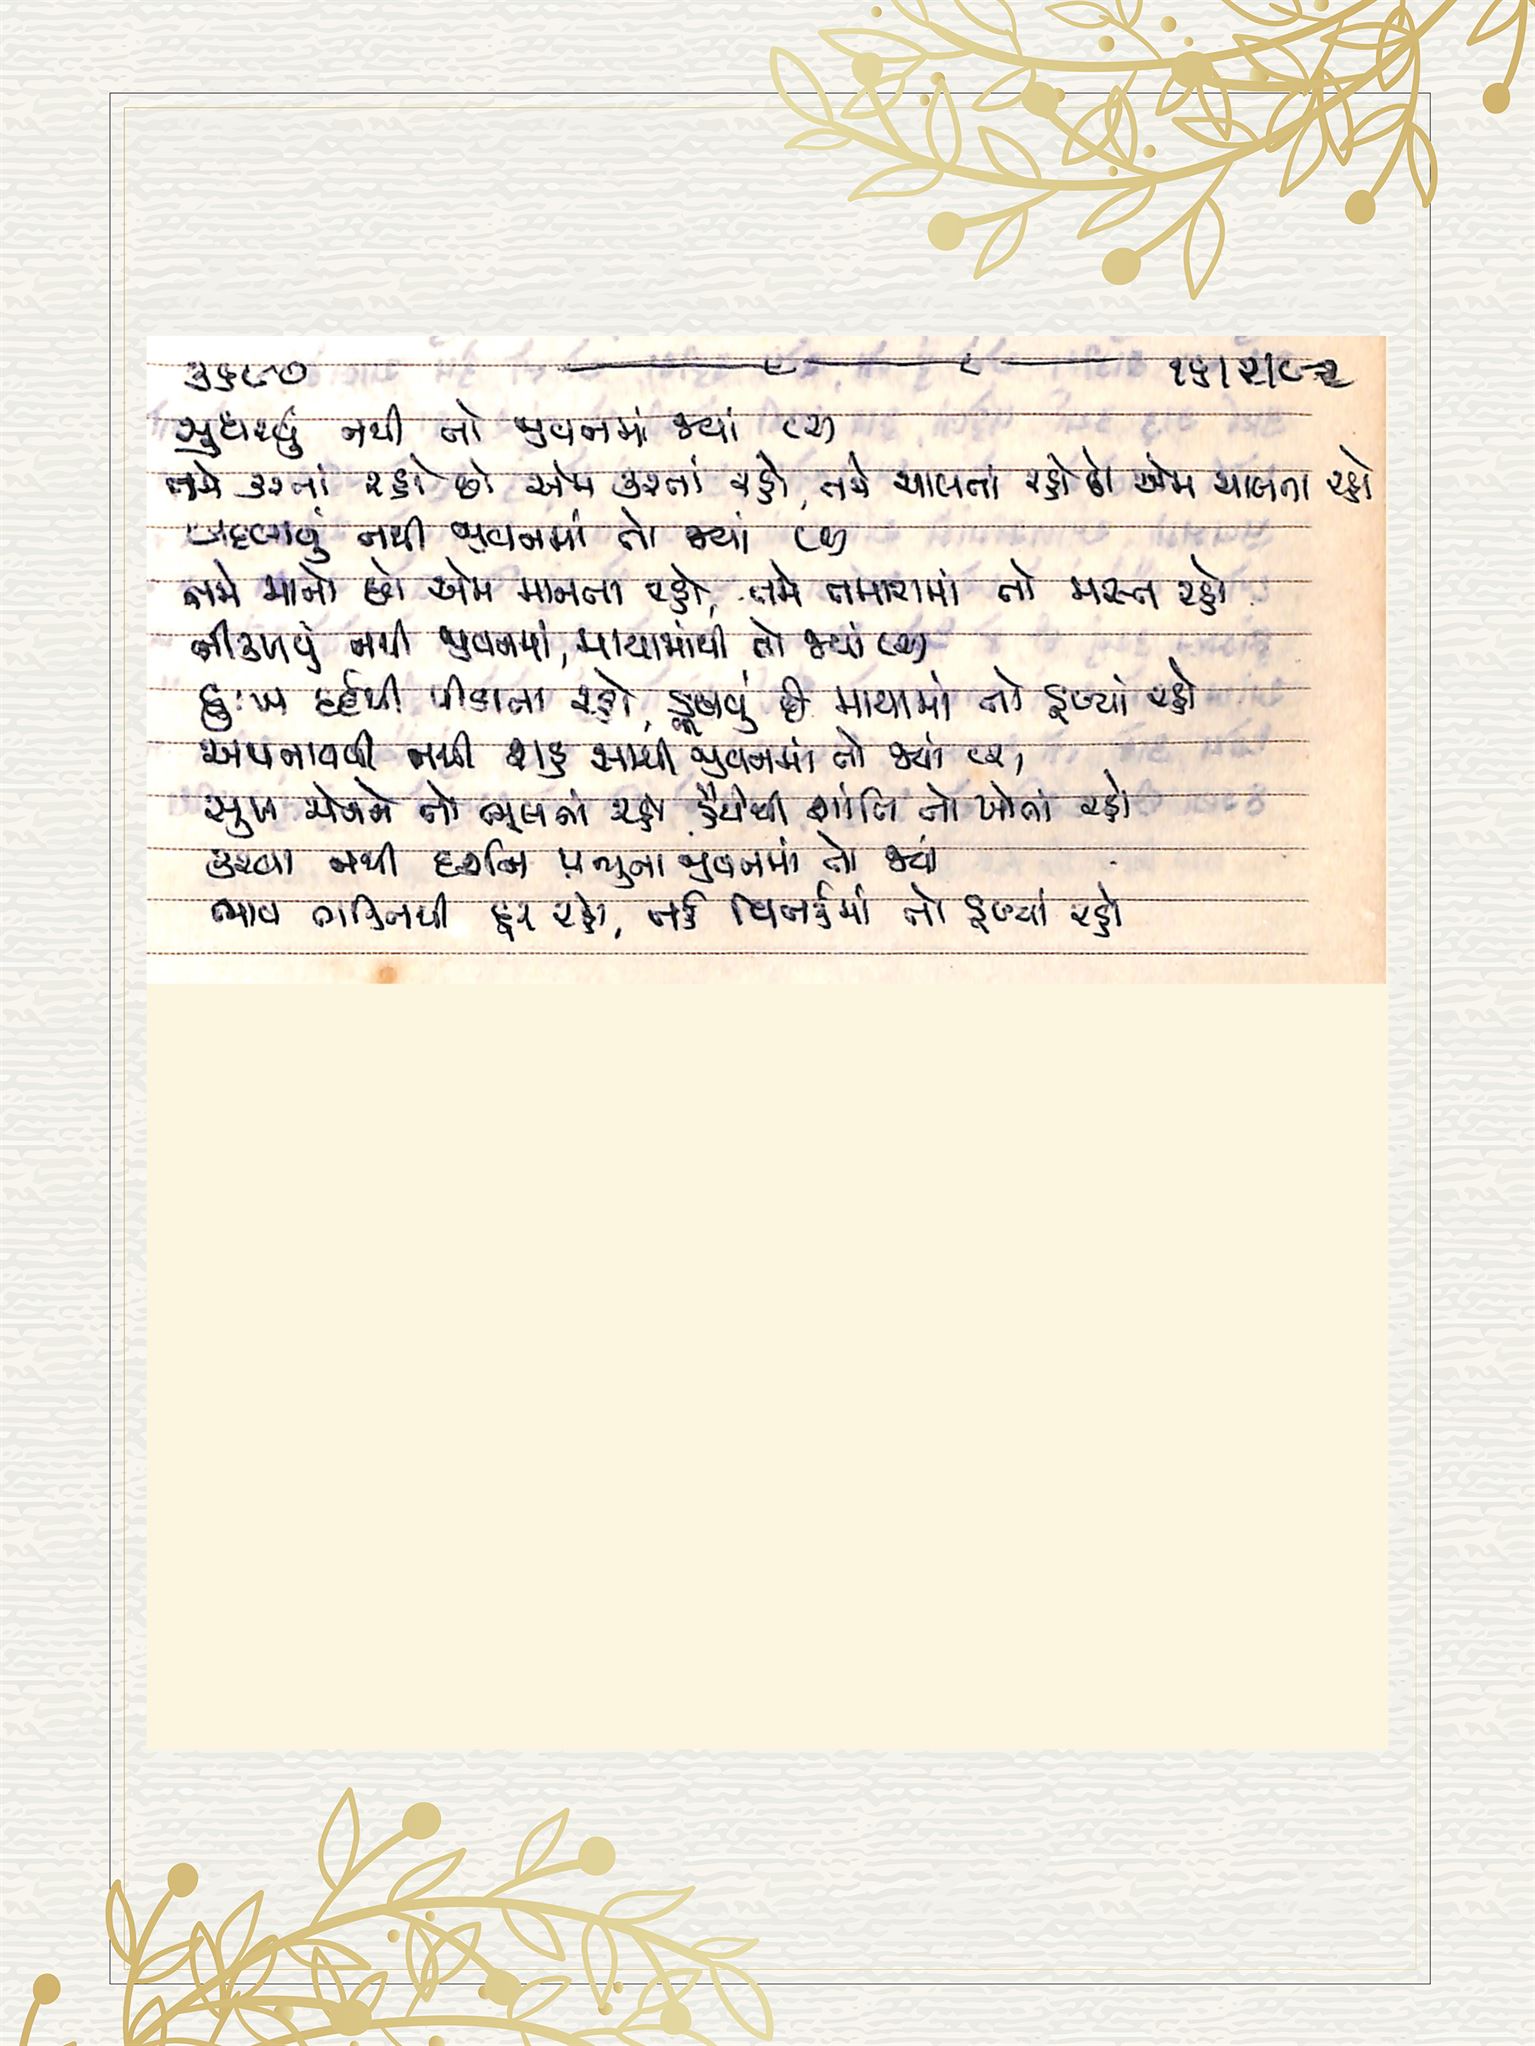 ૩૬૮૭ ૧૬/૨/૯૨
સુધરવું નથી તો જીવનમાં જ્યાં (૨)
તમે કરતાં રહો છો એમ કરતાં રહો, તમે ચાલતાં રહો છો એમ ચાલતા રહો
બદલાવું નથી જીવનમાં તો જ્યાં (૨)
તમે માનો છો એમ માનતા રહો, તમે તમારામાં તો મસ્ત રહો
નીકળવું નથી જીવનમાં, માયામાંથી તો જ્યાં (૨)
દુઃખ દર્દથી પીડાતા રહો, ડૂબવું છે માયામાં તો ડૂબ્યાં રહો
અપનાવવી નથી રાહ સાચી જીવનમાં તો જ્યાં (૨)
સુખ ચેનને તો ભૂલતાં રહો હૈયેથી શાંતિ તો ખોતાં રહો
કરવા નથી દર્શન પ્રભુના જીવનમાં તો જ્યાં
ભાવ ભક્તિથી દૂર રહો, તર્ક વિતર્કમાં તો ડૂબ્યાં રહો